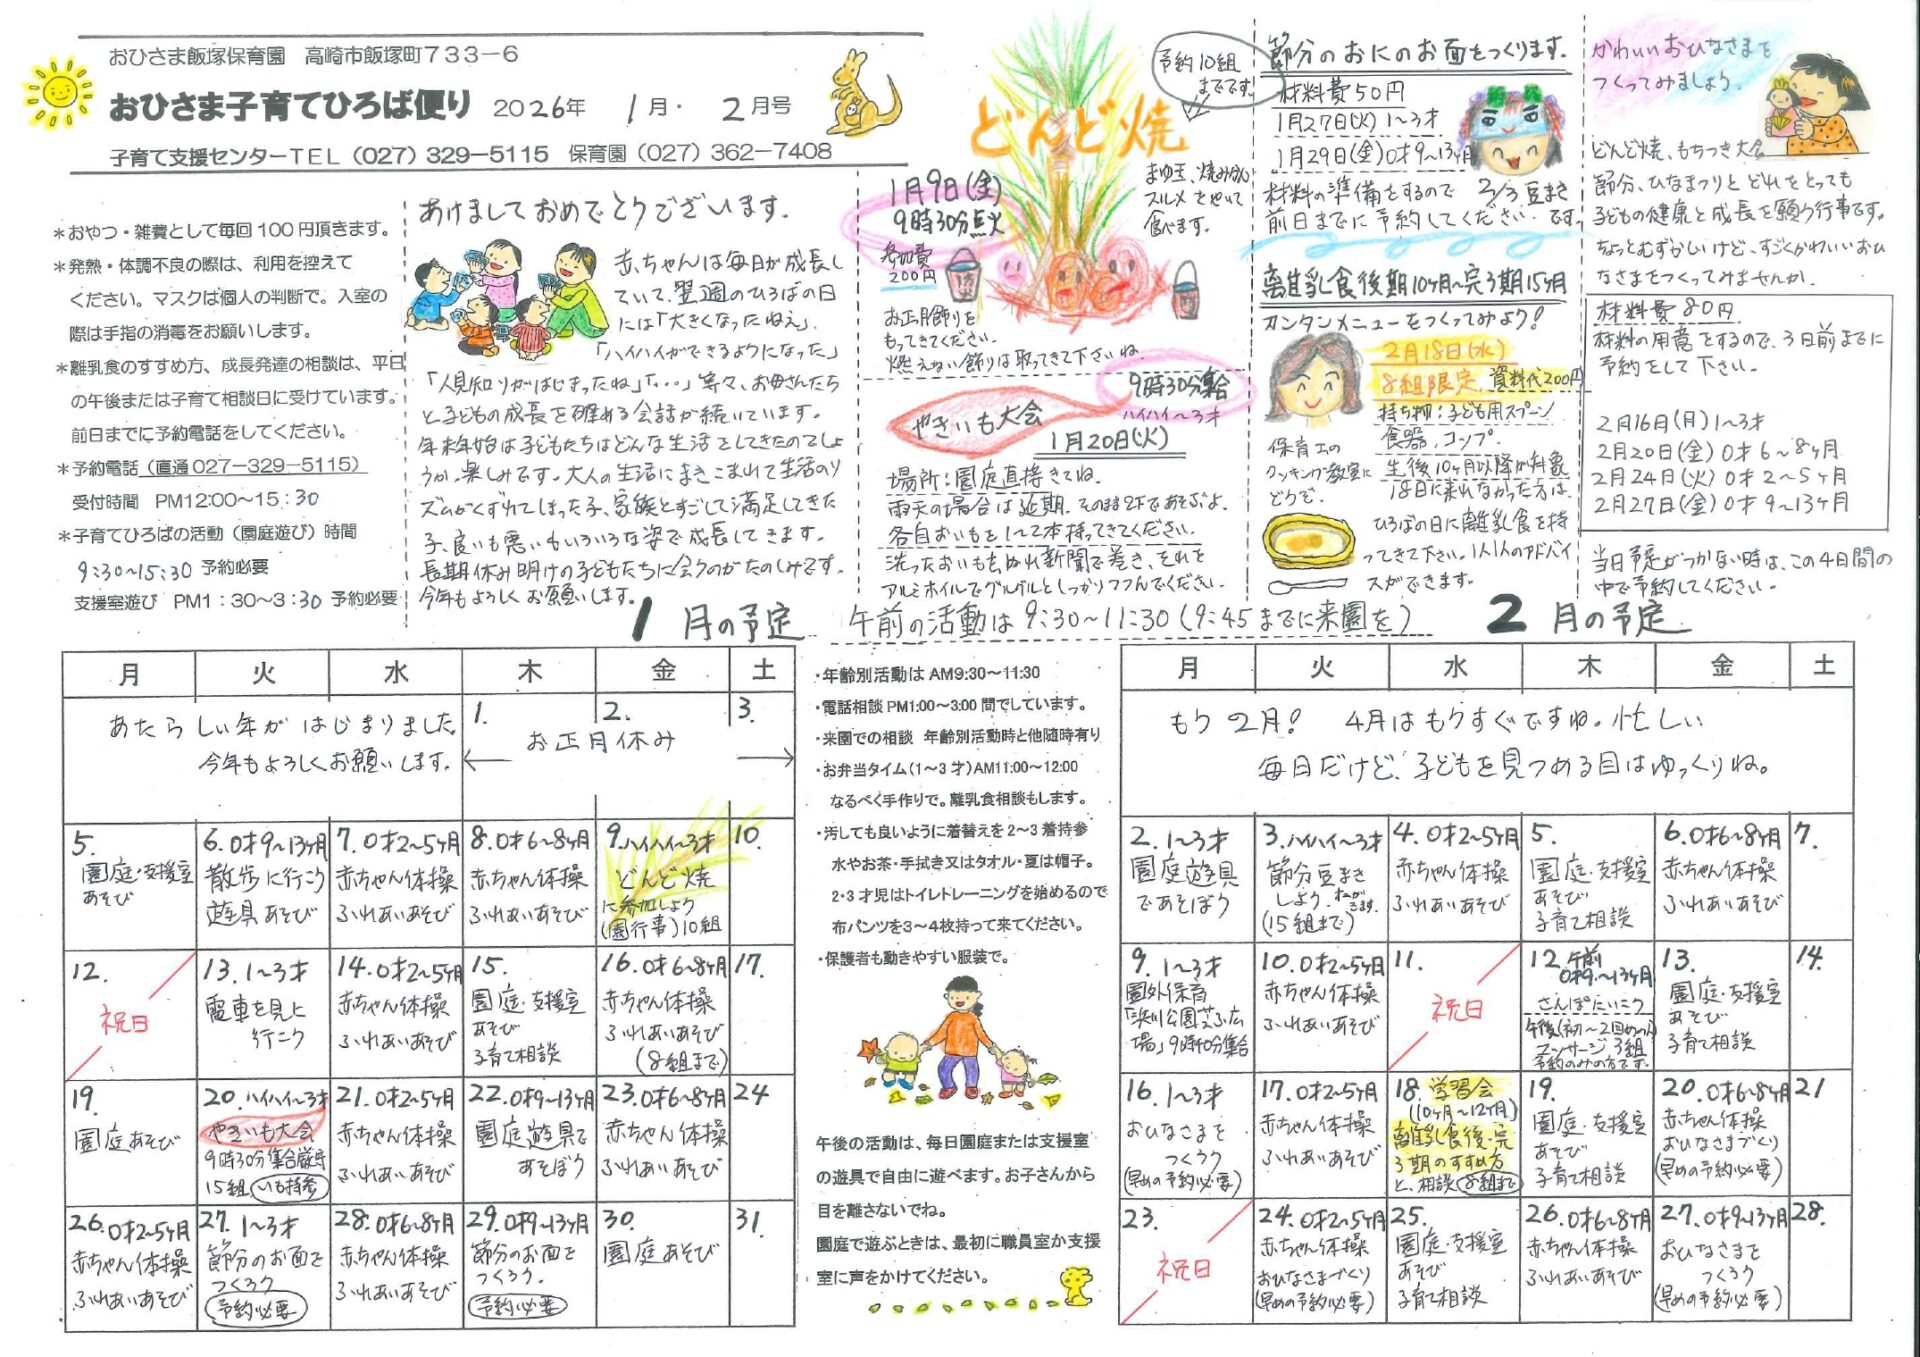 おひさま飯塚保育園　高崎市飯塚町７３３－６
おひさま子育てひろば便り 2026年 1月・2月号
子育て支援センターＴＥＬ（027）329－5115　保育園（027）362－7408
＊おやつ・雑費として毎回100円頂きます。
＊発熱・体調不良の際は、利用を控えて
ください。マスクは個人の判断で。入室の
際は手指の消毒をお願いします。
＊離乳食のすすめ方、成長発達の相談は、平日
の午後または子育て相談日に受けています。
前日までに予約電話をしてください。
＊予約電話（直通027－329－5115）
受付時間　PM12:00～15:30
＊子育てひろばの活動（園庭遊び）時間
9:30～15:30 予約必要
支援室遊び　PM1：30～3:30 予約必要
あけましておめでとうございます。
赤ちゃんは毎日が成長し
ていて、翌週のひろばの日
には「大きくなったねえ」、
「ハイハイができるようになった」
「人見知りがはじまったね」「・・・」等々、お母さんたち
と子どもの成長を確める会話が続いています。
年末年始は子どもたちはどんな生活をしてきたのでしょ
うか。楽しみです。大人の生活にまきこまれて生活のリ
ズムがくずれてしまった子、家族とすごして満足してきた
子、良いも悪いもいろいろな姿で成長してきます。
長期休み明けの子どもたちに会うのがたのしみです。
今年もよろしくお願いします。
どんど焼
予約10組
までです。
1月9日(金)
9時30分点火
参加費
200円
まゆ玉、焼みかん
スルメをやいて
食べます。
お正月飾りを
もってきてください。
燃えない飾りは取ってきて下さいね。
やきいも大会
9時30分集合
ハイハイ～3才
1月20日(火)
場所：園庭直接きてね。
雨天の場合は延期。そのまま2Fであそぶよ。
各自おいもを1～2本持ってきてください。
洗ったおいもをぬれ新聞で巻き、それを
アルミホイルでグルグルとしっかりつつんでください。
節分のおにのお面をつくります。
材料費50円
1月27日(火) 1～3才
1月29日(金) 0才9～13ヶ月
材料の準備をするので
前日までに予約してください。
2/3 豆まき
です。
離乳食後期10ヶ月～完了期15ヶ月
カンタンメニューをつくってみよう！
2月18日(水)
8組限定 資料代200円
持ち物：子ども用スプーン
食器、コップ
生後10ヶ月以降が対象
18日に来れなかった方は、
ひろばの日に離乳食を持
ってきて下さい。1人1人のアドバイ
スができます。
保育士の
クッキング教室に
どうぞ。
かわいいおひなさまを
つくってみましょう。
どんど焼、もちつき大会
節分、ひなまつりとどれをとっても
子どもの健康と成長を願う行事です。
ちょっとむずかしいけど、すごくかわいいおひ
なさまをつくってみませんか。
材料費80円
材料の用意をするので、3日前までに
予約をして下さい。
2月16日(月) 1～3才
2月20日(金) 0才6～8ヶ月
2月24日(火) 0才2～5ヶ月
2月27日(金) 0才9～13ヶ月
当日予定がつかない時は、この4日間の
中で予約してください。
1月の予定
午前の活動は9:30～11:30（9:45までに来園を）
2月の予定
月 火 水 木 金 土
あたらしい年がはじまりました。
今年もよろしくお願いします。
1. 2. 3.
お正月休み
5.
園庭・支援室
あそび
6. 0才9～13ヶ月
散歩に行こう
遊具あそび
7. 0才2～5ヶ月
赤ちゃん体操
ふれあいあそび
8. 0才6～8ヶ月
赤ちゃん体操
ふれあいあそび
9. ハイハイ～3才
どんど焼
に参加しよう
(園行事)10組
10.
12.
祝日
13. 1～3才
電車を見に
行こう
14. 0才2～5ヶ月
赤ちゃん体操
ふれあいあそび
15.
園庭・支援室
あそび
子育て相談
16. 0才6～8ヶ月
赤ちゃん体操
ふれあいあそび
(8組まで)
17.
19.
園庭あそび
20. ハイハイ～3才
やきいも大会
9時30分集合厳守
15組 いも持参
21. 0才2～5ヶ月
赤ちゃん体操
ふれあいあそび
22. 0才9～13ヶ月
園庭遊具で
あそぼう
23. 0才6～8ヶ月
赤ちゃん体操
ふれあいあそび
24
26. 0才2～5ヶ月
赤ちゃん体操
ふれあいあそび
27. 1～3才
節分のお面を
つくろう
予約必要
28. 0才6～8ヶ月
赤ちゃん体操
ふれあいあそび
29. 0才9～13ヶ月
節分のお面を
つくろう.
予約必要
30.
園庭あそび
31.
・年齢別活動はAM9:30～11:30
・電話相談PM1:00～3:00間でしています。
・来園での相談　年齢別活動時と他随時有り
・お弁当タイム（1～3才）AM11:00～12:00
なるべく手作りで。離乳食相談もします。
・汚しても良いように着替えを2～3着持参
水やお茶・手拭き又はタオル・夏は帽子。
2・3才児はトイレトレーニングを始めるので
布パンツを3～4枚持って来てください。
・保護者も動きやすい服装で。
午後の活動は、毎日園庭または支援室
の遊具で自由に遊べます。お子さんから
目を離さないでね。
園庭で遊ぶときは、最初に職員室か支援
室に声をかけてください。
月 火 水 木 金 土
もう2月！　4月はもうすぐですね。忙しい
毎日だけど、子どもを見つめる目はゆっくりね。
2. 1～3才
園庭遊具
であそぼう
3. ハイハイ～3才
節分豆まき
しよう.
(15組まで)
4. 0才2～5ヶ月
赤ちゃん体操
ふれあいあそび
5.
園庭・支援室
あそび
子育て相談
6. 0才6～8ヶ月
赤ちゃん体操
ふれあいあそび
7.
9. 1～3才
園外保育
「浜川公園芝ふ広
場」9時40分集合
10. 0才2～5ヶ月
赤ちゃん体操
ふれあいあそび
11.
祝日
12. 午前
0才9～13ヶ月
さんぽにいこう
午後(初～2回めの人)
マッサージ3組
予約のみの方です.
13.
園庭・支援室
あそび
子育て相談
14.
16. 1～3才
おひなさまを
つくろう
(早めの予約必要)
17. 0才2～5ヶ月
赤ちゃん体操
ふれあいあそび
18. 学習会
(10ヶ月～12ヶ月)
離乳食後・完
了期のすすめ方
と、相談 8組まで
19.
園庭・支援室
あそび
子育て相談
20. 0才6～8ヶ月
赤ちゃん体操
おひなさまづくり
(早めの予約必要)
21
23.
祝日
24. 0才2～5ヶ月
赤ちゃん体操
おひなさまづくり
(早めの予約必要)
25.
園庭・支援室
あそび
子育て相談
26. 0才6～8ヶ月
赤ちゃん体操
ふれあいあそび
27. 0才9～13ヶ月
おひなさまを
つくろう
(早めの予約必要)
28.